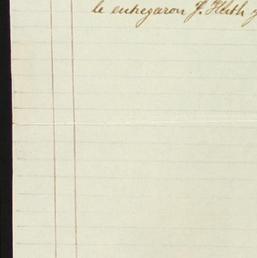 le entregaron J. Heith y